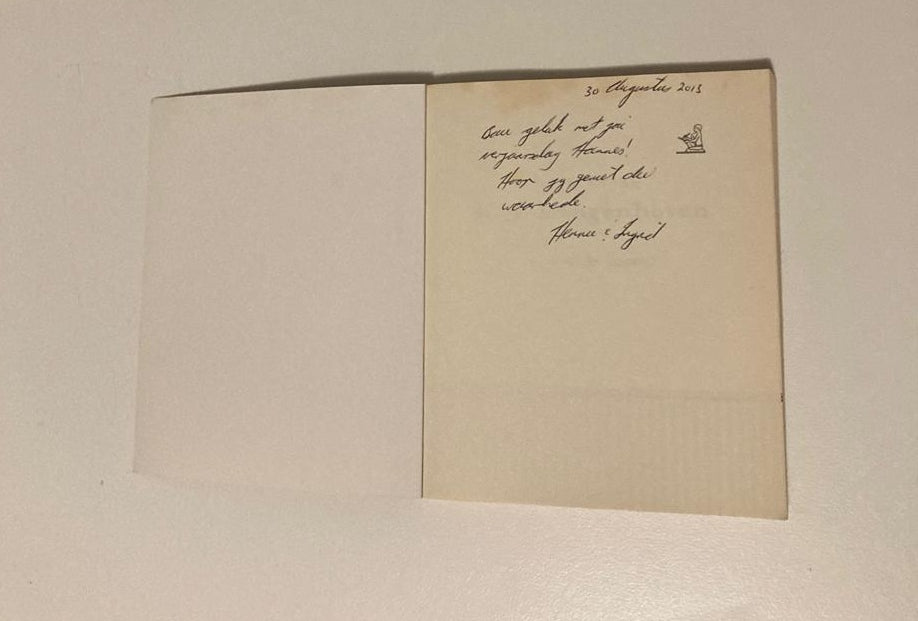 30 Augustus 2013
Baie geluk met jou
verjaarsdag Hannes!
Hoop jy geniet die
waarhede.
& Ingrid